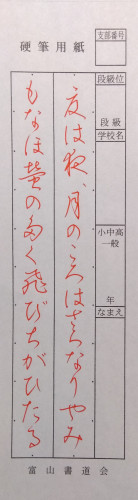 支部番号
硬筆用紙
段級位
段級
学校名
小中高
一般
年
なまえ
夏は夜、月のころはさらなりやみ
もなほ蛍の多く飛びちがひたる
富山書道会